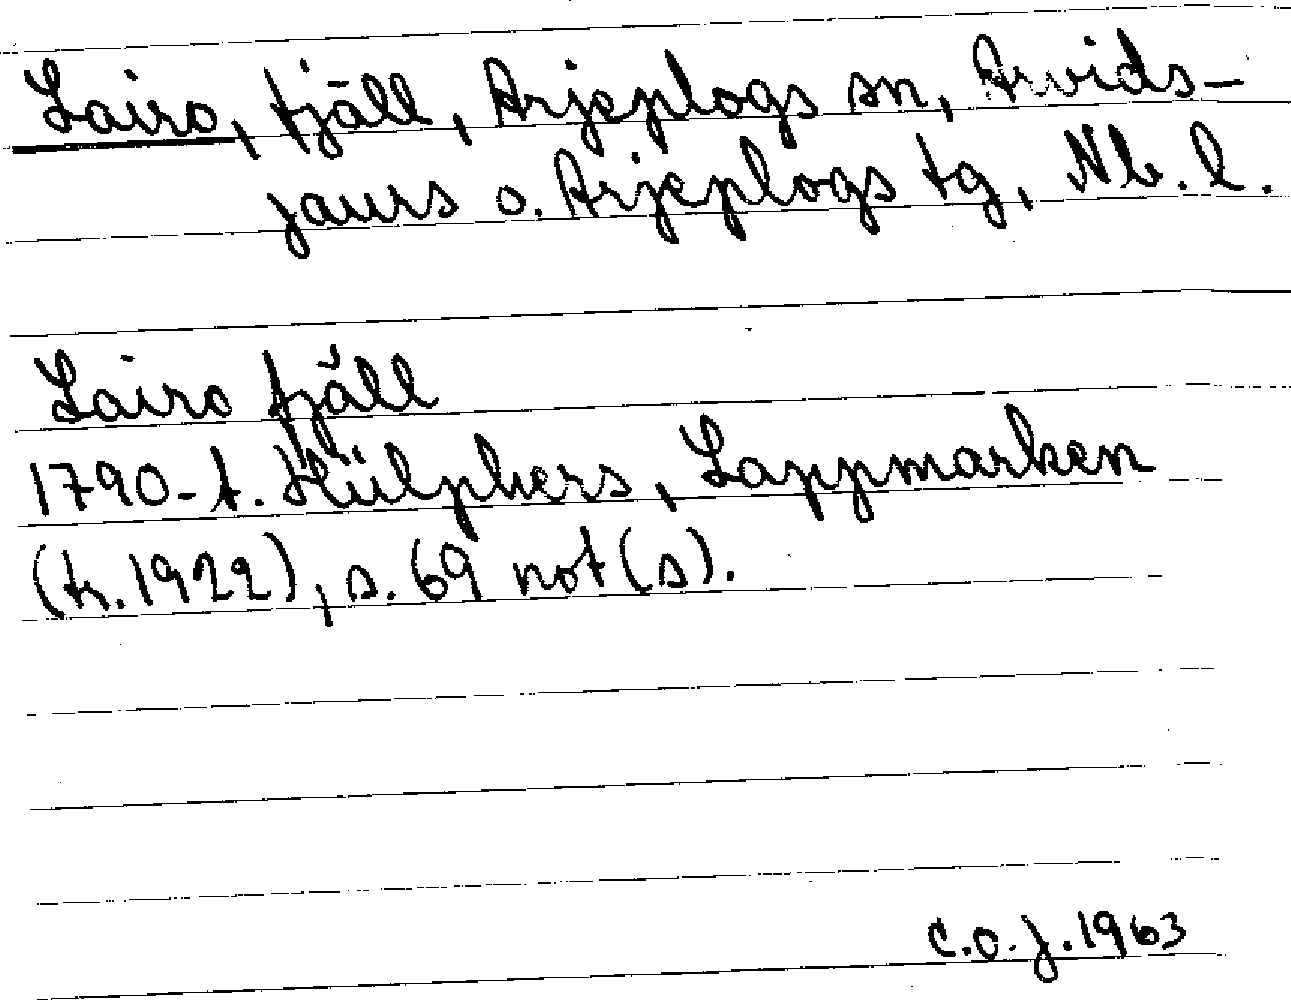 Lairo, fjäll, Arjeplogs sn, Arvids-
jaurs o. Arjeplogs tg, Nb. l.
Lairo fjäll
1790-t. Hülphers, Lappmarken
(tr. 1922), s. 69 not(s).
C.O.J. 1963